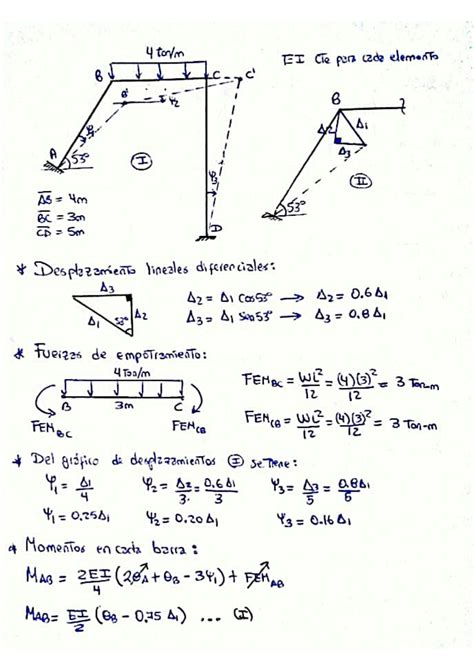 4 ton/m
EI Cte para cada elemento
B
C
C'
B'
φ2
B
Δ1
Δ2
Δ3
φ1
A
53°
I
φ3
II
53°
AB = 4m
BC = 3m
CD = 5m
D
* Desplazamiento lineales diferenciales:
Δ3
Δ1
53°
Δ2
Δ2 = Δ1 Cos53° → Δ2 = 0.6Δ1
Δ3 = Δ1 Sen53° → Δ3 = 0.8Δ1
* Fuerzas de empotramiento:
4 Ton/m
B
3m
C
FEM BC
FEM CB
FEM BC = WL²/12 = (4)(3)²/12 = 3 Ton-m
FEM CB = WL²/12 = (4)(3)²/12 = 3 Ton-m
* Del gráfico de desplazamientos I se tiene:
φ1 = Δ1/4
φ2 = Δ2/3 = 0.6Δ1/3
φ3 = Δ3/5 = 0.8Δ1/5
φ1 = 0.25Δ1
φ2 = 0.20Δ1
φ3 = 0.16Δ1
* Momentos en cada barra:
MAB = 2EI/4 (2θA + θB - 3φ1) + FEM AB
MAB = EI/2 (θB - 0.75Δ1) ... (I)